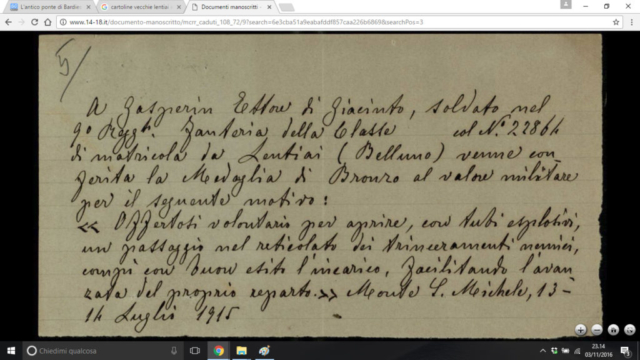 L'antico ponte di Bardie
cartoline vecchie lentiai
Documenti manoscritti -
www.14-18.it/documento-manoscritto/mcrr_caduti_108_72/9?search=6e3cba51a9eabafddf857caa226b6869&searchPos=3
5/
A Gasperin Ettore di Giacinto, soldato nel
9° Regg. Fanteria della Classe col N° 22864
di matricola da Lentiai (Belluno) venne con
ferita la Medaglia di Bronzo al valore militare
per il seguente motivo:
« Offertosi volontario per aprire, con tubi esplosivi,
un passaggio nel reticolato dei trinceramenti nemici,
compì con buon esito l'incarico, facilitando l'avan
zata del proprio reparto.» Monte S. Michele, 13-
14 Luglio 1915
Chiedimi qualcosa
23.14
03/11/2016